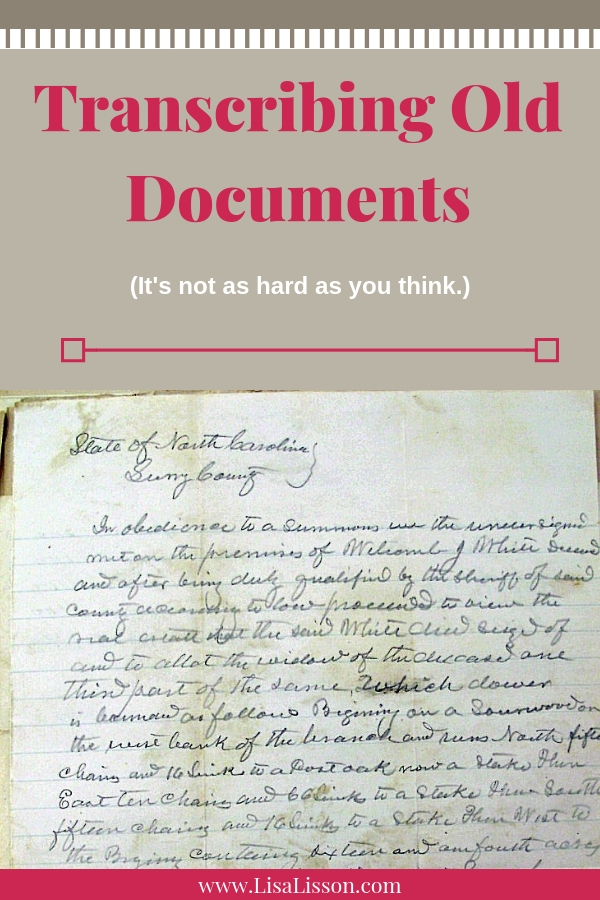 Transcribing Old
Documents
(It's not as hard as you think.)
State of North Carolina
Surry County
In obedience to a summons we the undersigned
met on the premises of Welcomb J White
and after being duly qualified by the Sheriff of said
county according to law proceeded to view the
real estate that the said White died of
and to allot the widow of the deceased one
third part of the same, which dower
is as follows Begining on a Sourwood on
the west bank of the branch and runs North
chains and 16 Links to a Post oak now a Stake Then
East ten chains and 66 Links to a Stake Then South
fifteen chains and 16 Links to a Stake Then West to
the Begining sixteen and one fourth acres
www.LisaLisson.com